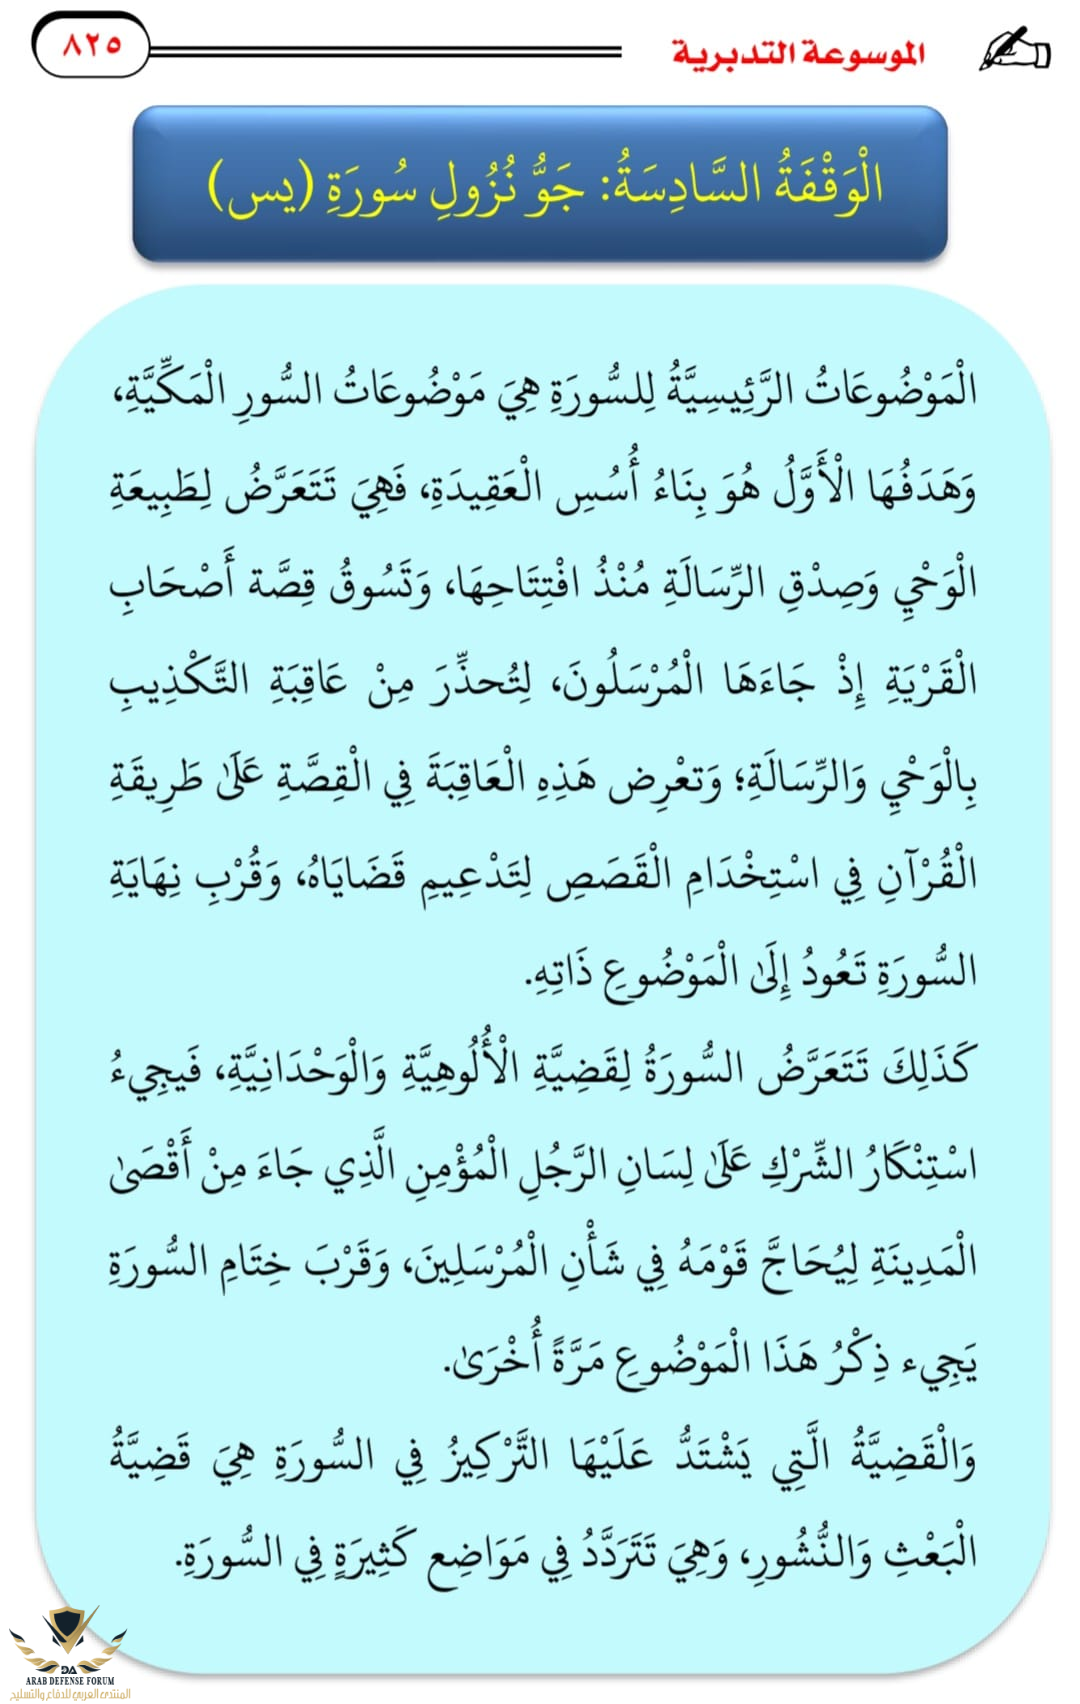 الموسوعة التدبرية
٨٢٥
الْوَقْفَةُ السَّادِسَةُ: جَوُّ نُزُولِ سُورَةِ (يس)
الْمَوْضُوعَاتُ الرَّئِيسِيَّةُ لِلسُّورَةِ هِيَ مَوْضُوعَاتُ السُّورِ الْمَكِّيَّةِ،
وَهَدَفُهَا الْأَوَّلُ هُوَ بِنَاءُ أُسُسِ الْعَقِيدَةِ، فَهِيَ تَتَعَرَّضُ لِطَبِيعَةِ
الْوَحْيِ وَصِدْقِ الرِّسَالَةِ مُنْذُ افْتِتَاحِهَا، وَتَسُوقُ قِصَّة أَصْحَابِ
الْقَرْيَةِ إِذْ جَاءَهَا الْمُرْسَلُونَ، لِتُحذِّرَ مِنْ عَاقِبَةِ التَّكْذِيبِ
بِالْوَحْيِ وَالرِّسَالَةِ؛ وَتعْرِض هَذِهِ الْعَاقِبَةَ فِي الْقِصَّةِ عَلَىٰ طَرِيقَةِ
الْقُرْآنِ فِي اسْتِخْدَامِ الْقَصَصِ لِتَدْعِيمِ قَضَايَاهُ، وَقُرْبِ نِهَايَةِ
السُّورَةِ تَعُودُ إِلَىٰ الْمَوْضُوعِ ذَاتِهِ.
كَذَلِكَ تَتَعَرَّضُ السُّورَةُ لِقَضِيَّةِ الْأُلُوهِيَّةِ وَالْوَحْدَانِيَّةِ، فَيجِيءُ
اسْتِنْكَارُ الشِّرْكِ عَلَىٰ لِسَانِ الرَّجُلِ الْمُؤْمِنِ الَّذِي جَاءَ مِنْ أَقْصَىٰ
الْمَدِينَةِ لِيُحَاجَّ قَوْمَهُ فِي شَأْنِ الْمُرْسَلِينَ، وَقَرْبَ خِتَامِ السُّورَةِ
يَجِيء ذِكْرُ هَذَا الْمَوْضُوعِ مَرَّةً أُخْرَىٰ.
وَالْقَضِيَّةُ الَّتِي يَشْتَدُّ عَلَيْهَا التَّرْكِيزُ فِي السُّورَةِ هِيَ قَضِيَّةُ
الْبَعْثِ وَالنُّشُورِ، وَهِيَ تَتَرَدَّدُ فِي مَوَاضِع كَثِيرَةٍ فِي السُّورَةِ.
DA
ARAB DEFENSE FORUM
المنتدى العربي للدفاع والتسليح